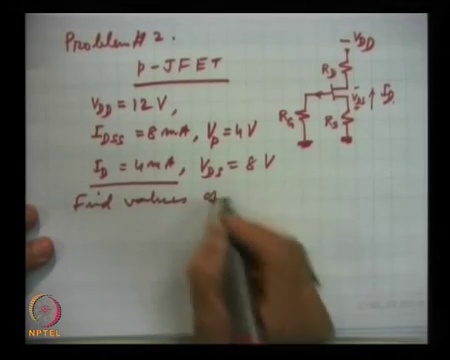 Problem # 2.
p-JFET
VDD = 12 V,
IDSS = 8 mA, Vp = 4V
ID = 4 mA, VDS = 8 V
Find values of
- VDD
RD
VDS
ID
RG
RS
NPTEL